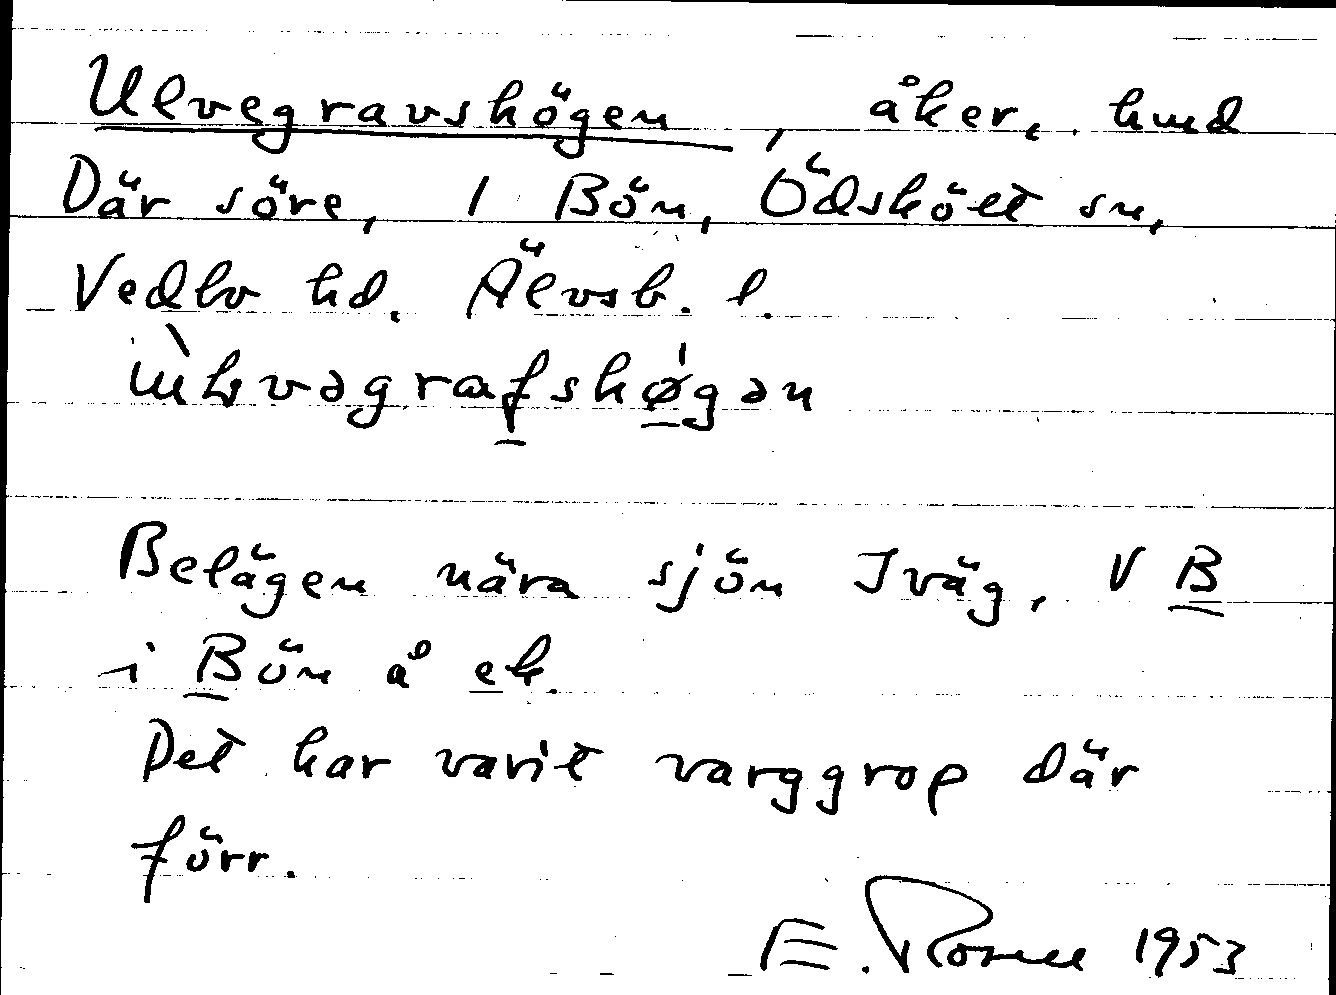 Ulvegravshögen, åker, hmd
Där söre, 1 Bön, Ödskölt sn,
Vedbo hd. Älvsb. l.
Belägen nära sjön Iväg, V B
i Bön å ek.
Det har varit varggrop där
förr.
E. 1953